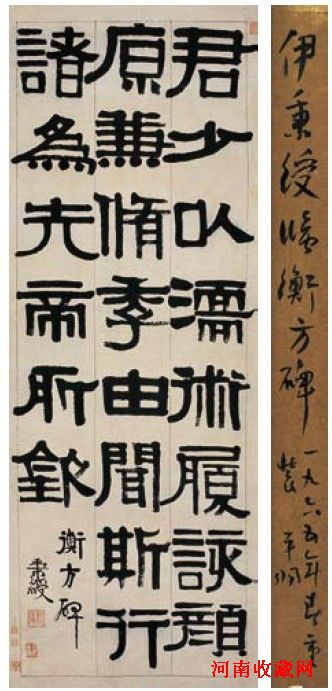 君少以濡術履該顔
原兼脩季由聞斯行
諸為先帝所欽
衡方碑
秉綬
伊秉綬臨衡方碑
一九六五年
河南收藏网